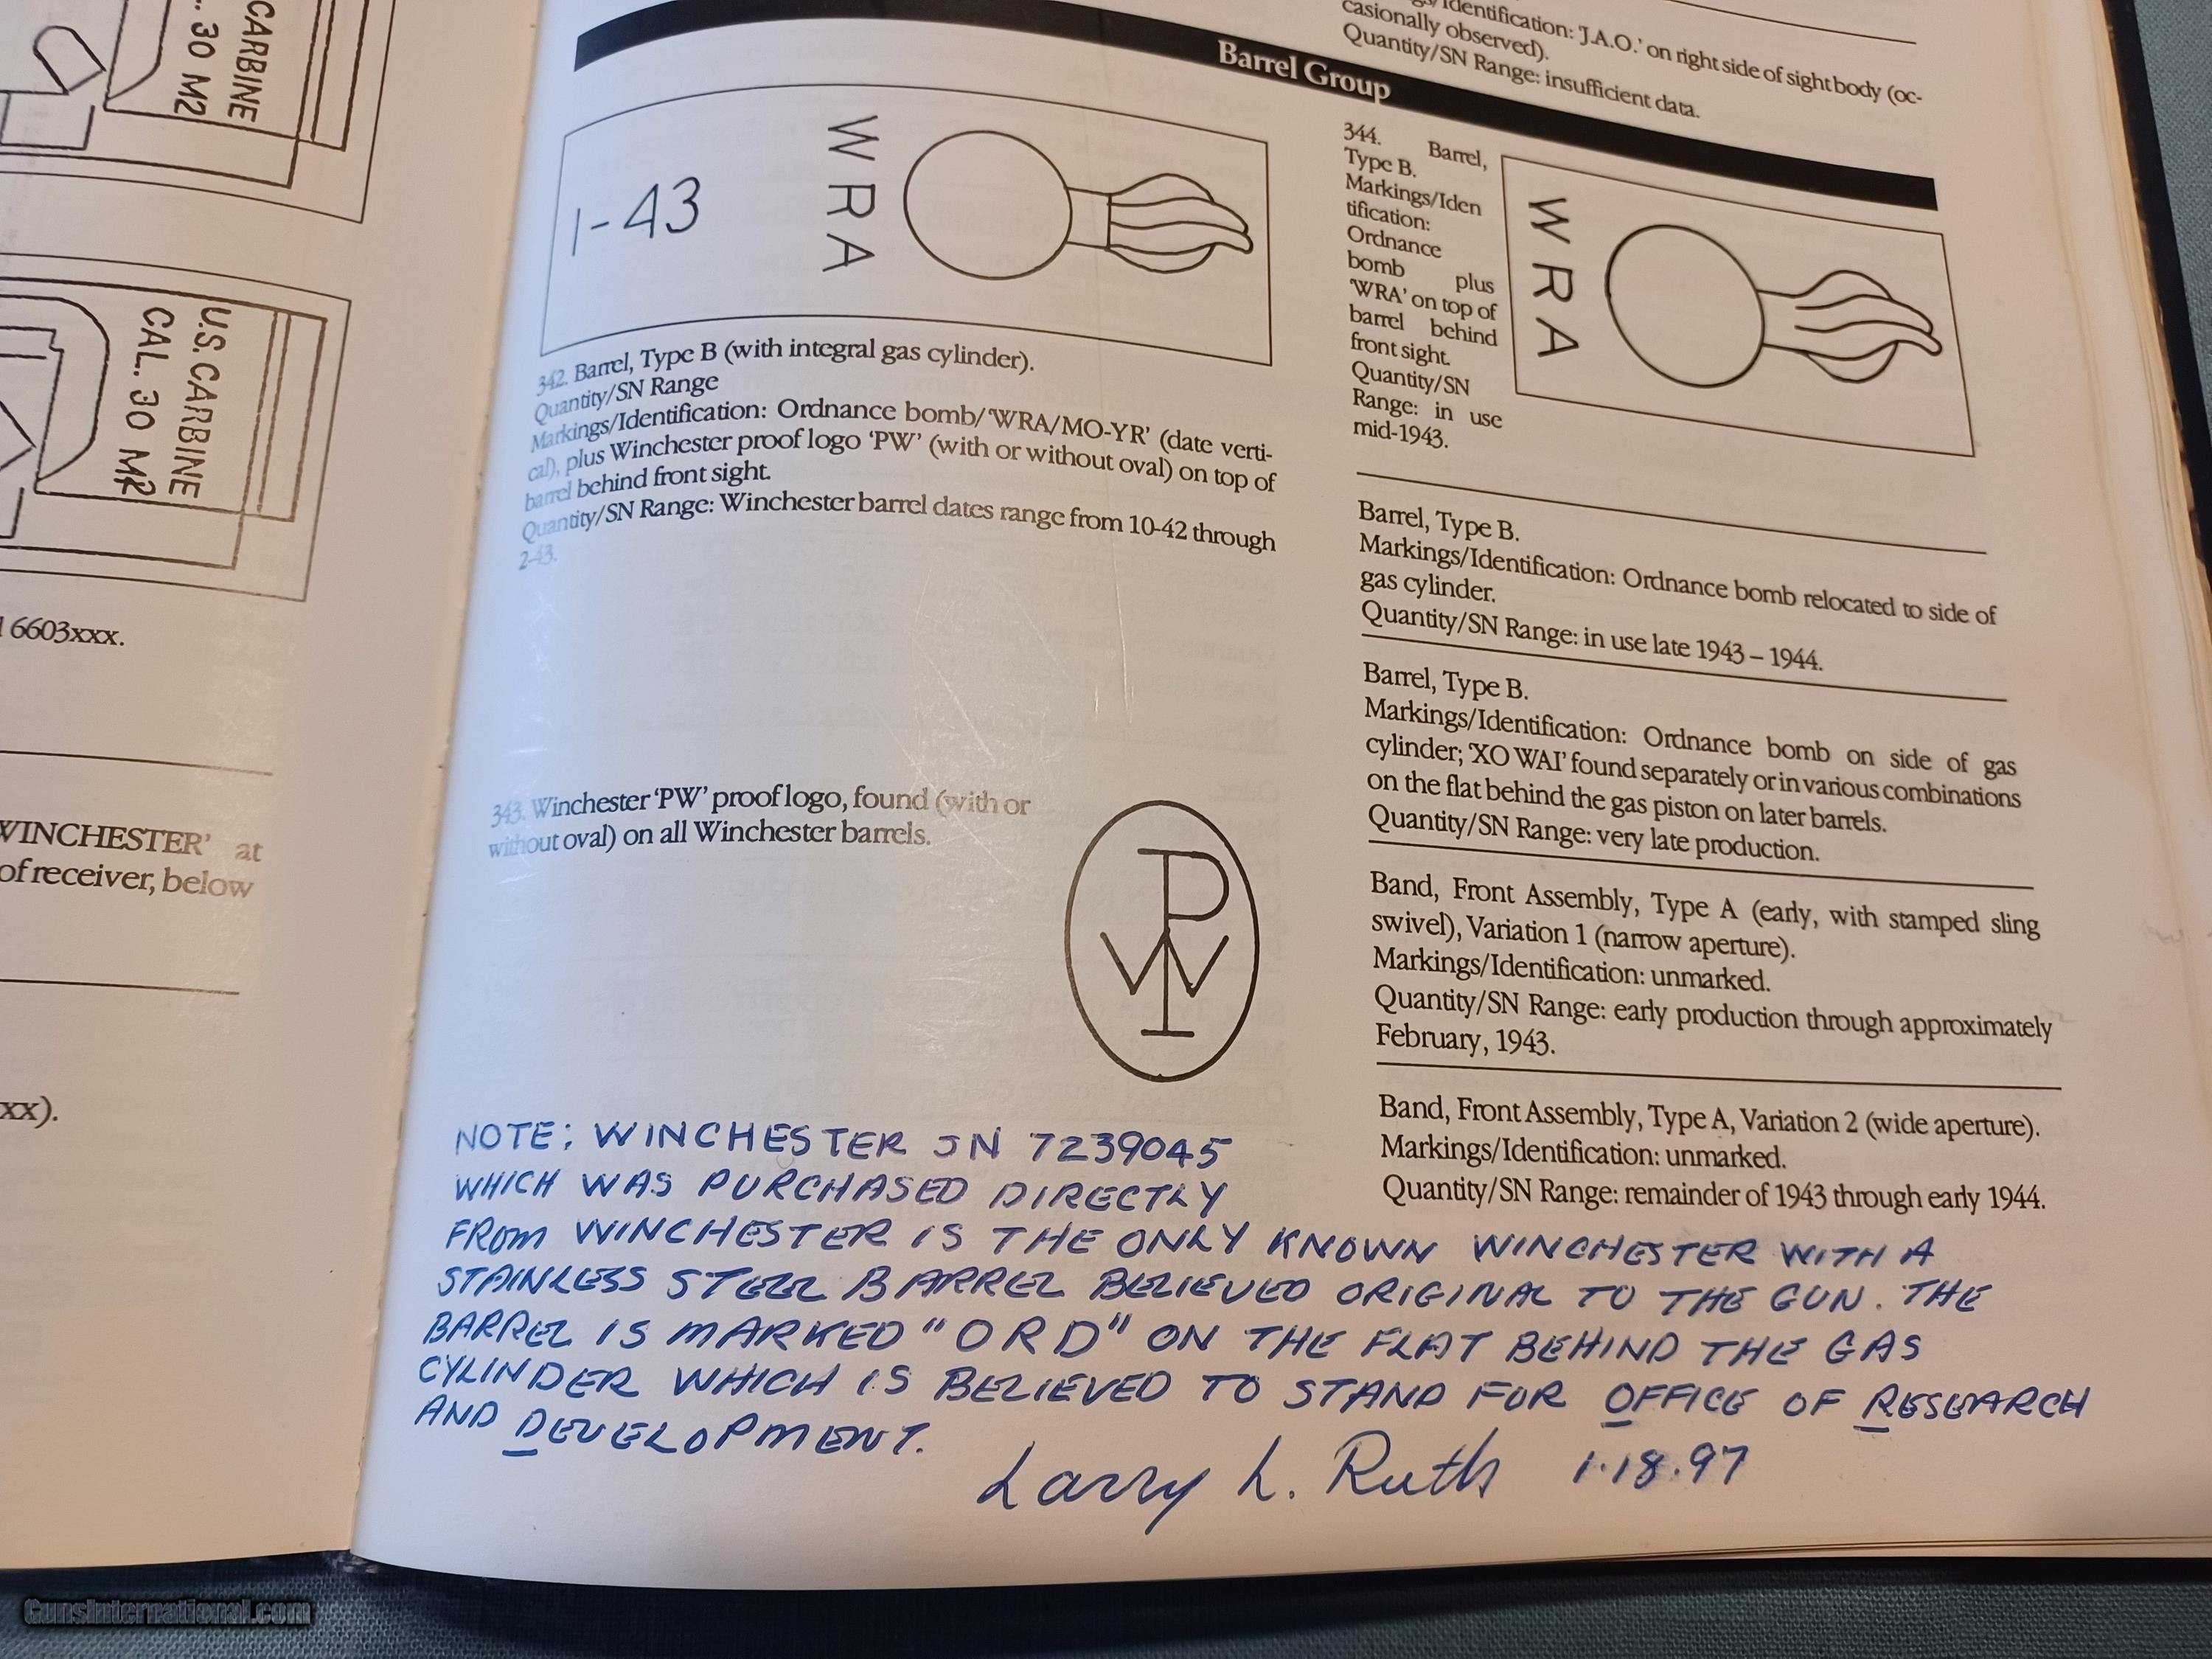 CARBINE
. 30 M2
U.S. CARBINE
CAL. .30 M2
6603xxx.
WINCHESTER' at
of receiver, below
xx).
Barrel Group
1-43
W R A
342. Barrel, Type B (with integral gas cylinder).
Quantity/SN Range
Markings/Identification: Ordnance bomb/'WRA/MO-YR' (date verti-
cal), plus Winchester proof logo 'PW' (with or without oval) on top of
barrel behind front sight.
Quantity/SN Range: Winchester barrel dates range from 10-42 through
2-43.
343. Winchester 'PW' proof logo, found (with or
without oval) on all Winchester barrels.
P
W
/Identification: 'J.A.O.' on right side of sight body (oc-
casionally observed).
Quantity/SN Range: insufficient data.
344. Barrel,
Type B.
Markings/Iden
tification:
Ordnance
bomb plus
'WRA' on top of
barrel behind
front sight.
Quantity/SN
Range: in use
mid-1943.
W R A
Barrel, Type B.
Markings/Identification: Ordnance bomb relocated to side of
gas cylinder.
Quantity/SN Range: in use late 1943 – 1944.
Barrel, Type B.
Markings/Identification: Ordnance bomb on side of gas
cylinder; 'XO WAI' found separately or in various combinations
on the flat behind the gas piston on later barrels.
Quantity/SN Range: very late production.
Band, Front Assembly, Type A (early, with stamped sling
swivel), Variation 1 (narrow aperture).
Markings/Identification: unmarked.
Quantity/SN Range: early production through approximately
February, 1943.
Band, Front Assembly, Type A, Variation 2 (wide aperture).
Markings/Identification: unmarked.
Quantity/SN Range: remainder of 1943 through early 1944.
NOTE: WINCHESTER SN 7239045
WHICH WAS PURCHASED DIRECTLY
FROM WINCHESTER IS THE ONLY KNOWN WINCHESTER WITH A
STAINLESS STEEL BARREL BELIEVED ORIGINAL TO THE GUN. THE
BARREL IS MARKED "ORD" ON THE FLAT BEHIND THE GAS
CYLINDER WHICH IS BELIEVED TO STAND FOR OFFICE OF RESEARCH
AND DEVELOPMENT.
Larry L. Ruth 1.18.97
GunsInternational.com